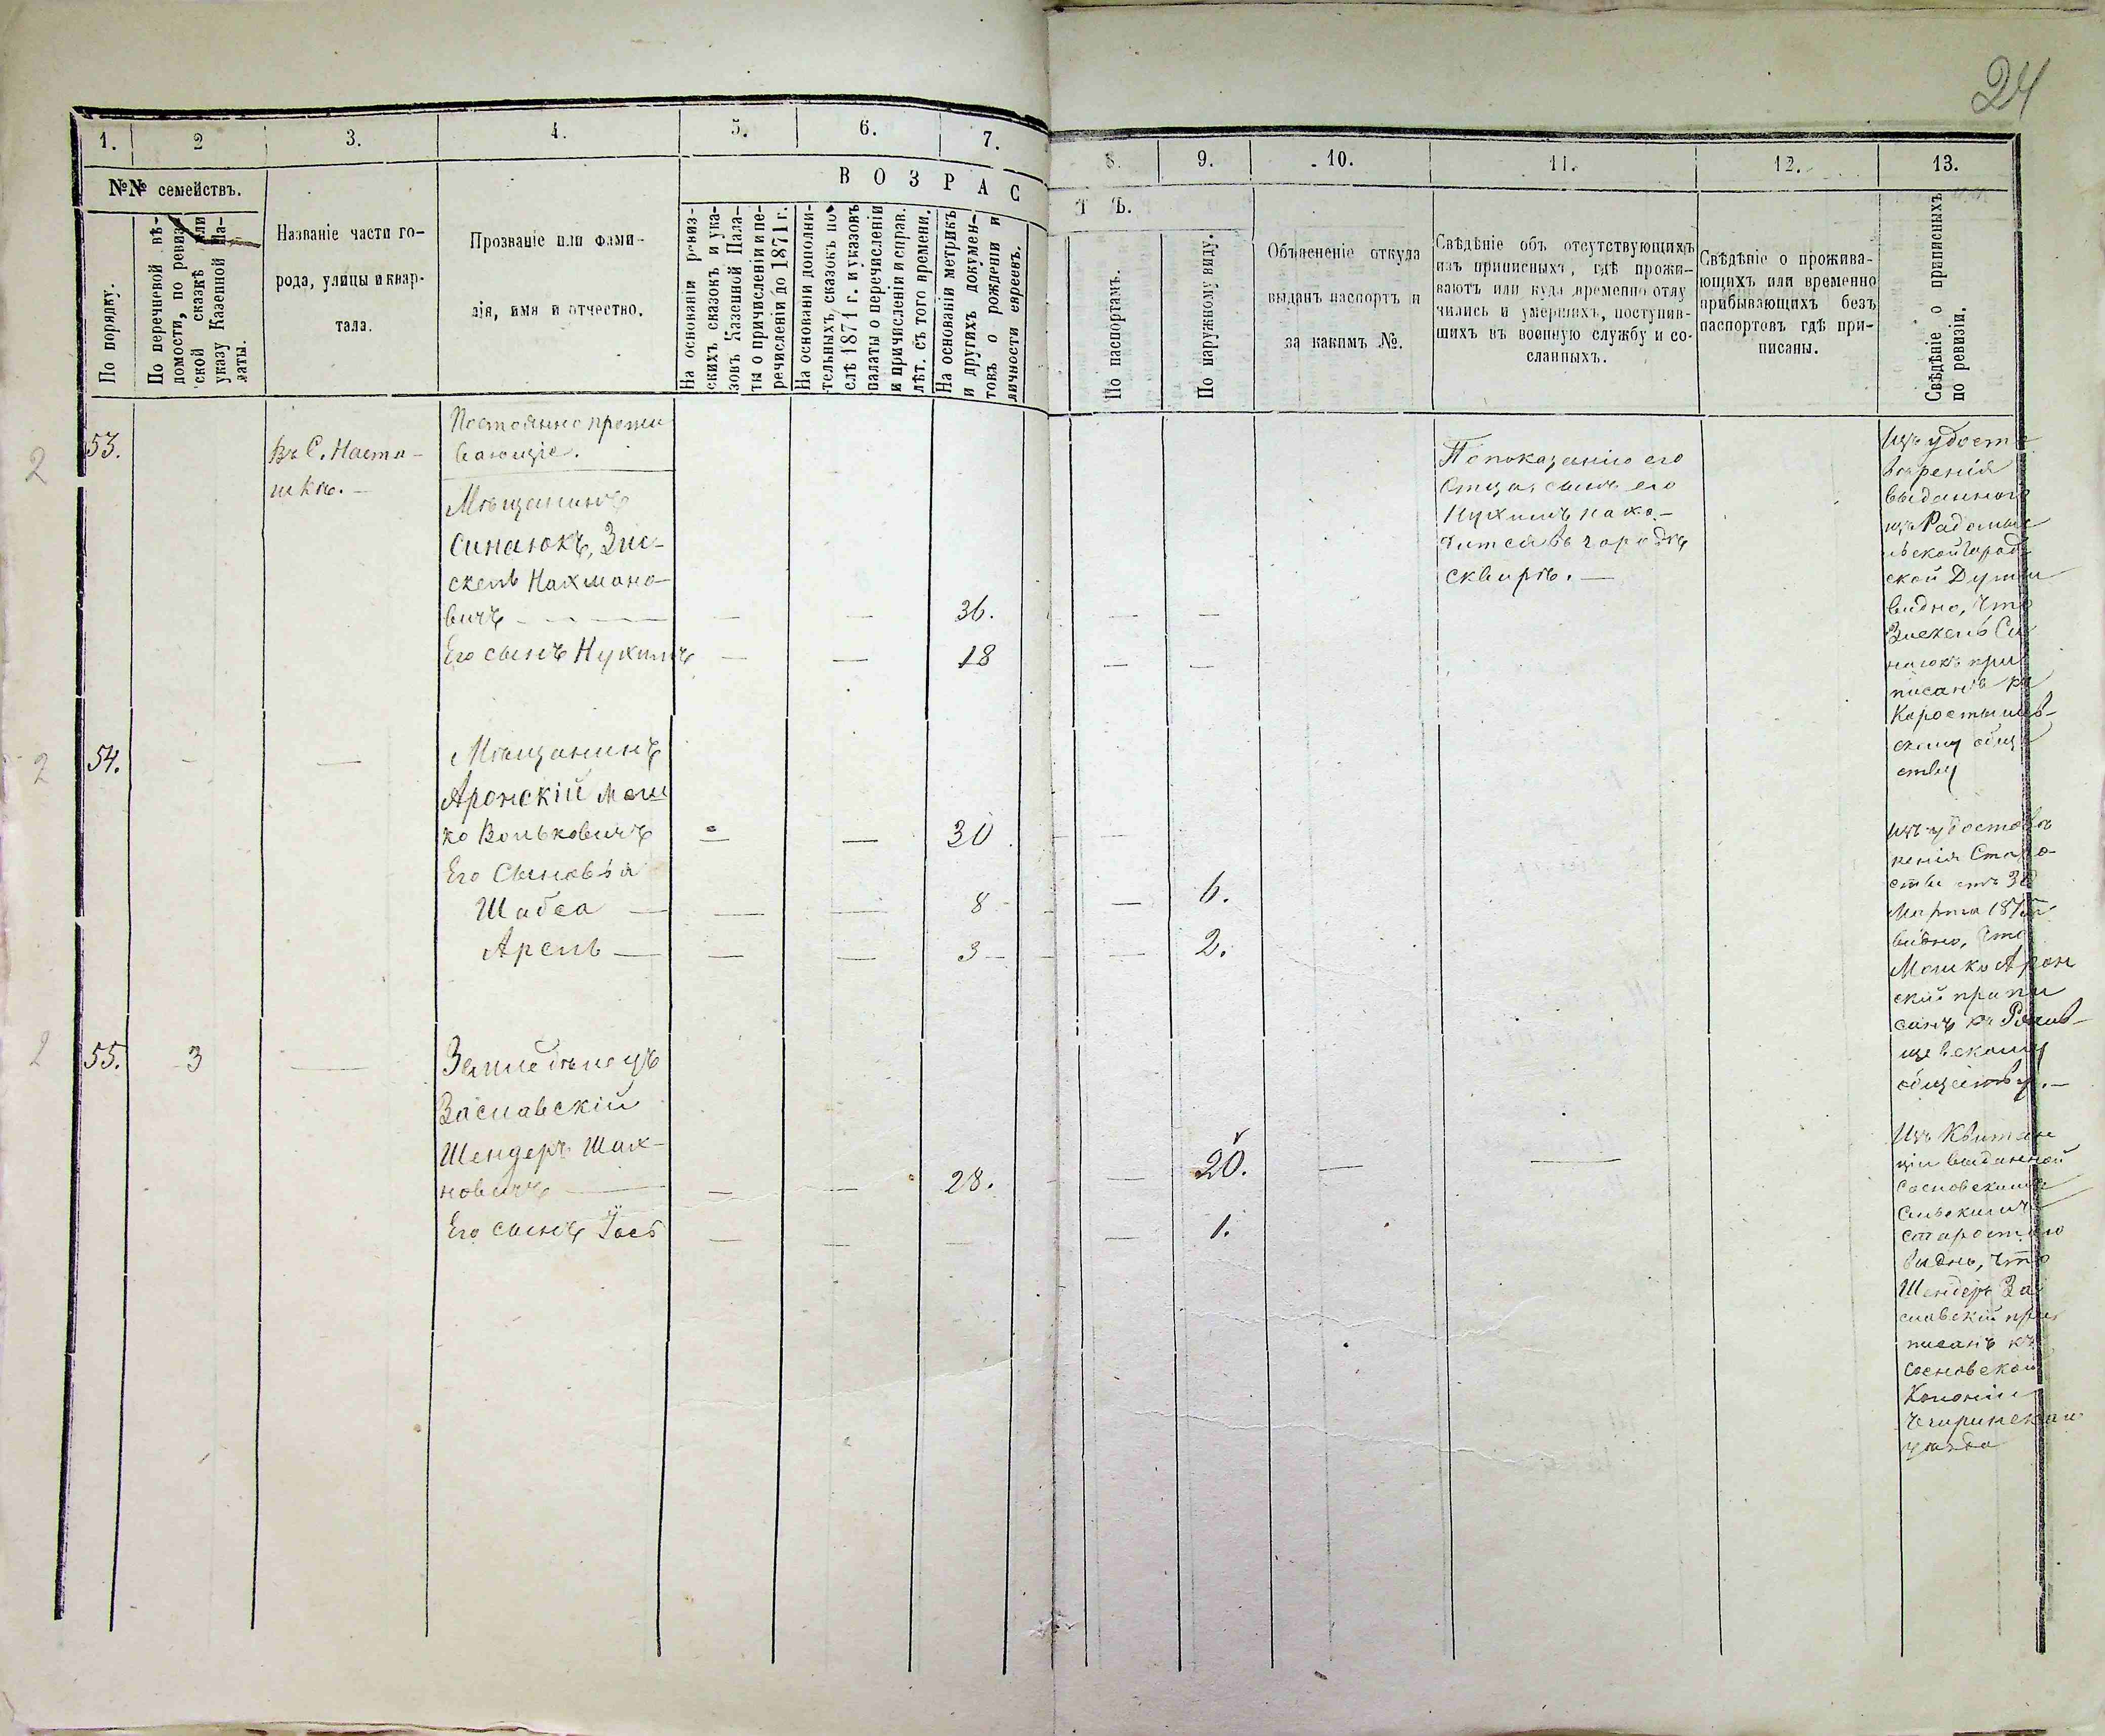 24
1. 2 3. 4. 5. 6. 7. 8. 9. 10. 11. 12. 13.
№№ семействъ.
По порядку.
По перечневой вѣ-
домости, по ревиз
ской сказкѣ или
указу Казенной Па-
латы.
Названіе части го-
рода, улицы и квар-
тала.
Прозваніе или фами-
лія, имя и отчество.
ВОЗРАСТЪ.
На основаніи ревиз-
скихъ сказокъ и ука-
зовъ Казенной Пала-
ты о причисленіи и пе-
речисленіи до 1871 г.
На основаніи дополни-
тельныхъ сказокъ по-
слѣ 1871 г. и указовъ
палаты о перечисленіи
и причисленіи и справ.
лѣт. съ того времени.
На основаніи метрикъ
и другихъ докумен-
товъ о рожденіи и
личности евреевъ.
По паспортамъ.
По наружному виду.
Объясненіе откуда
выданъ паспортъ и
за какимъ №.
Свѣдѣніе объ отсутствующихъ
изъ приписныхъ, гдѣ прожи-
ваютъ или куда временно отлу
чились и умершихъ, поступив-
шихъ въ военную службу и со-
сланныхъ.
Свѣдѣніе о прожива-
ющихъ или временно
прибывающихъ безъ
паспортовъ гдѣ при-
писаны.
Свѣдѣніе о приписныхъ
по ревизіи.
2
53.
Въ С. Наста-
шкѣ. —
Постоянно прожи
вающіе.
Мѣщанинъ
Синаюкъ, Зис-
сель Нахмано-
вичъ — — — 36. — —
Его сынъ Нухимъ — — 18 — —
По показанію его
Отца, сынъ его
Нухимъ нахо-
дится въ городѣ
Сквирѣ. —
Изъ удосто
вѣренія
выданнаго
изъ Радомыс
льской Город
ской Думы
видно, что
Си
наюкъ при
писанъ къ
Коростышев-
скому обще
ству
2
54. - —
Мѣщанинъ
Аронскій Мош
ко Вольковичъ — — 30 —
Его Сыновья
Шабса — — — 8 — 6.
Арель — — — 3 — — 2.
Изъ удостовѣ
ренія Старо-
сты отъ
Марта
видно, что
Мошко Арон
скій припи
санъ къ
обществу. —
2
55. 3 —
Земледѣлецъ
Заславскій
Шендеръ Шах-
новичъ — — — 28. — 20. — —
Его сынъ Іось — — — — 1.
Изъ Квитан
ціи выданной
Сосновскимъ
Сельскимъ
старостою
видно, что
Шендеръ За
славскій при
писанъ къ
Сосновской
Колоніи
Чигиринскаго
уѣзда